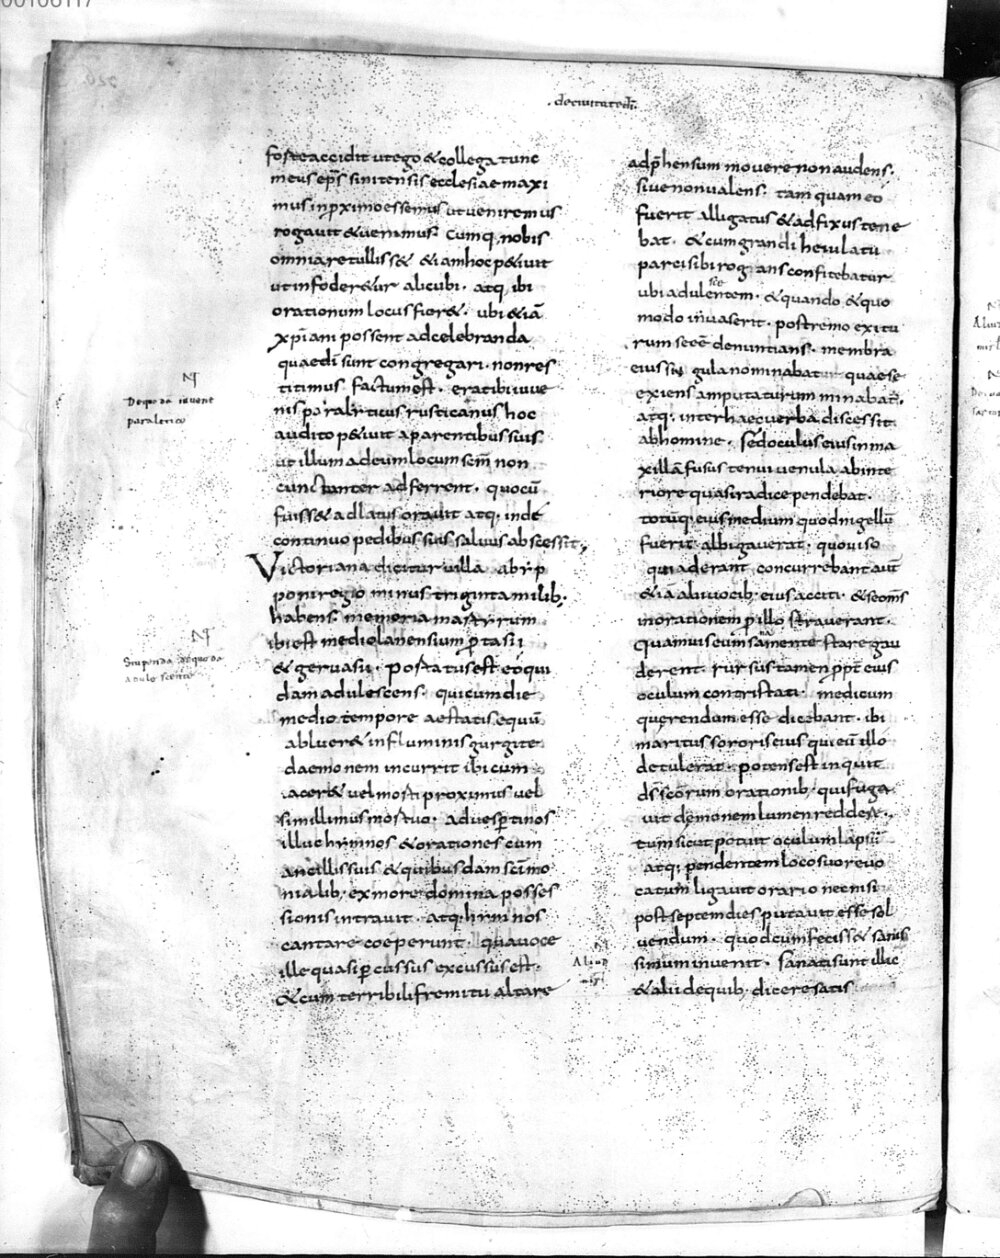 decivitate di
foste accidit ut ego & collega tunc
meus ep̅s sinitensis ecclesiae maxi
mus in p̱ximo essemus ut veniremus
rogavit & venimus. Cumq; nobis
omnia retulliss& & iam hoc p&ivit
ut infoder&ur alicubi. atq; ibi
orationum locus fier&. ubi &iā
xp̅iani possent ad celebranda
quae di̅ sunt congregari. non res
titimus. factum est. erat ibi iuve
nis paralyticus rusticanus hoc
audito p&ivit a parentibus suis
ut illum ad eum locum sc̅m non
cunctanter adferrent. quo cū
fuiss& adlatus oravit atq; inde
continuo pedibus suis salvus abscessit;
Victoriana dicitur villa ab yp
pone regio minus triginta milib;
habens. memoria martyrum
ibi est mediolanensium p̱tasii
& gervasii. Portatus est eo qui
dam adulescens. qui cum die
medio tempore aestatis equū
abluer& in fluminis gurgite
daemonem incurrit ibi cum
iacer& vel morti proximus vel
simillimus mortuo. ad vesp̱tinos
illuc hymnos & orationes cum
ancillis suis & quibusdam sc̅imo
nialib; ex more domina posses
sionis intravit. atq; hymnos
cantare coeperunt. qua voce
ille quasi p̱cussus excussus est.
& cum terribili fremitu altare
adp̱hensum movere non audens.
sive non valens. tamquam eo
fuerit alligatus & adfixus tene
bat. & cum grandi heiulatu
parci sibi rogans confitebatur
ubi adulescentem. & quando & quo
modo invaserit. postremo exitu
rum se e̅e̅ denuntians. membra
eius singula nominabat. quae se
exiens amputaturum minabat̅.
atq; inter haec verba discessit
ab homine. Sed oculus eius in ma
xillā fusus tenui venula ab inte
riore quasi radice pendebat.
totūq; eius medium quod nigellū
fuerit albigaverat. quo viso
qui aderant concurrebant aut̅
&iā ali vocib; eius acciti. & se om̅s
in orationem p̱ illo straverant.
quamvis eum sana mente stare gau
derent. rursus tamen p̱pt̅ eius
oculum contristati. medicum
querendum esse dicebant. ibi
maritus sororis eius qui eū illo
detulerat. potens est inquit
d̅s sc̅orum orationib; qui fuga
vit demonem lumen reddere.
tum sicut potuit oculum lapsū
atq; pendentem loco suo revo
catum ligavit orario nec nisi
post septem dies putavit esse sol
vendum. quod cum feciss& sanis
simum invenit. Sanati sunt illic
& alii de quib; dicere satis
De quoda iuvene
paraletico
Stupenda de quoda
adulescente